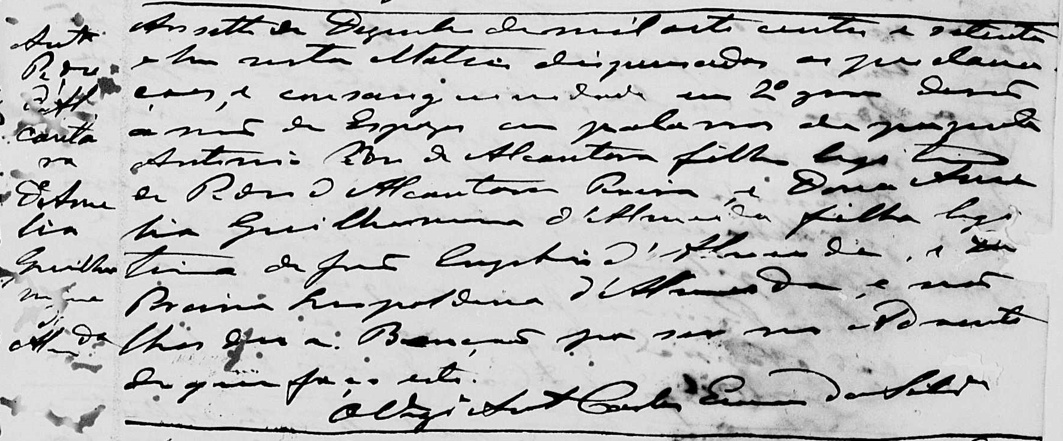 Antº
Pedro
d'Al
canta
ra
D. Ame
lia
Guilher
mina
d'
Almda
Aos sette de Dezembro de mil oito centos e setenta
e hu nesta Matris dispensados as proclama
coes, e consanguinidade em 2º grau derão
a mão de Espozos em palavras de prezente
Antonio Pedro de Alcantara filho legitimo
de Pedro d'Alcantara e Dona Ame
lia Guilhermina d'Almeida filha legi
tima de João Euzebio d'Almeida, e
Leopoldina d'Almeida, e não
lhes dei a Benção por ser no Advento
do que faço este.
O Vigº Antº Carlos da Silva